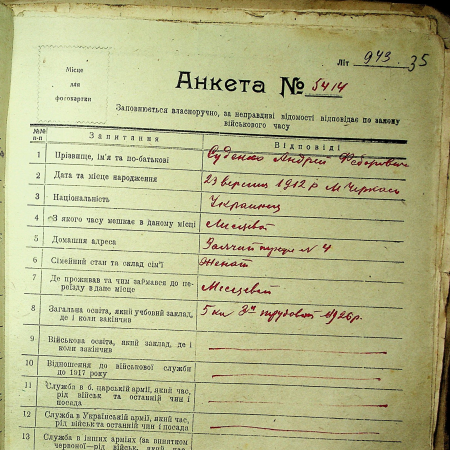 Літ 943. 35
Місце
для
фотокартки
Анкета № 5414
Заповнюється власноручно, за неправдиві відомості відповідає по закону
військового часу
№№ п-п Запитання Відповіді
1 Прізвище, ім'я та по-батькові Суденко Андрей Федорович
2 Дата та місце народження 23 вересня 1912 р М Черкаси
3 Національність Украинец
4 З якого часу мешкає в даному місці Местный
5 Домашня адреса № 4
6 Сімейний стан та склад сім'ї Женат
7 Де проживав та чим займався до пе-
реїзду в дане місце Місцевий
8 Загальна освіта, який учбовий заклад,
де і коли закінчив 5 кл 3ая трудовая 1926 р.
9 Військова освіта, який заклад, де і
коли закінчив
10 Відношення до військової служби
до 1917 року
11 Служба в б. царській армії, який час,
рід військ та останній чин і
посада
12 Служба в Українській армії, який час,
рід військ та останній чин і посада
13 Служба в інших арміях (за винятком
червоної—рід військ, який час,